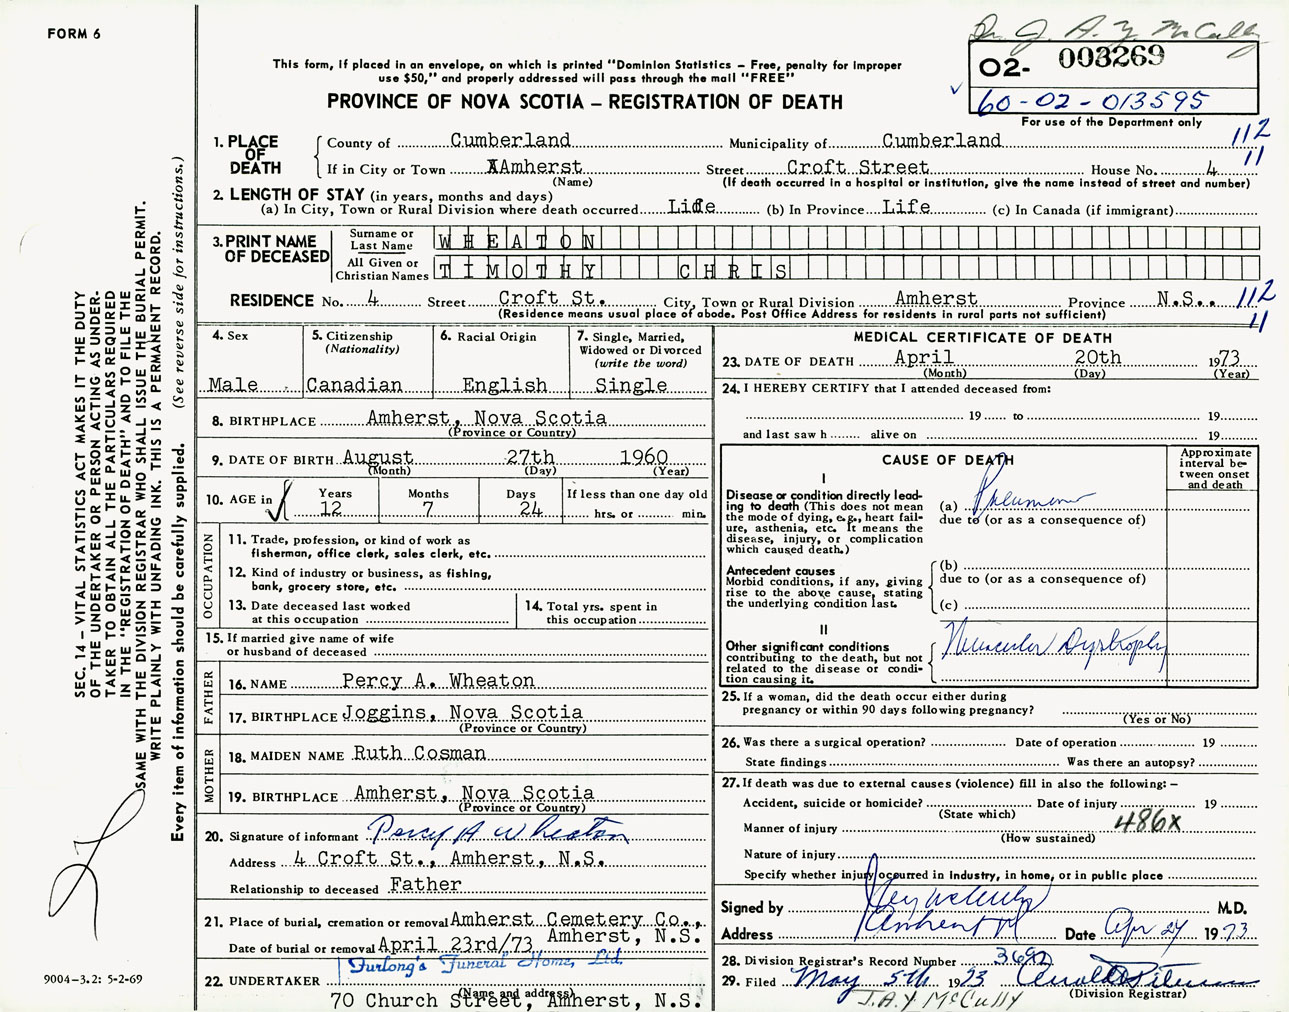 FORM 6
Dr. J. A. Y. McCully
This form, if placed in an envelope, on which is printed "Dominion Statistics – Free, penalty for improper
use $50," and properly addressed will pass through the mail "FREE"
PROVINCE OF NOVA SCOTIA – REGISTRATION OF DEATH
02- 003269
60-02-013595
For use of the Department only
1. PLACE OF DEATH
County of Cumberland Municipality of Cumberland 112
If in City or Town XAmherst Street Croft Street House No. 4 11
(Name) (If death occurred in a hospital or institution, give the name instead of street and number)
2. LENGTH OF STAY (in years, months and days)
(a) In City, Town or Rural Division where death occurred Life (b) In Province Life (c) In Canada (if immigrant)
3. PRINT NAME OF DECEASED
Surname or Last Name WHEATON
All Given or Christian Names TIMOTHY CHRIS
RESIDENCE No. 4 Street Croft St. City, Town or Rural Division Amherst Province N.S. 112
(Residence means usual place of abode. Post Office Address for residents in rural parts not sufficient) 11
4. Sex
Male
5. Citizenship
(Nationality)
Canadian
6. Racial Origin
English
7. Single, Married,
Widowed or Divorced
(write the word)
Single
8. BIRTHPLACE Amherst, Nova Scotia
(Province or Country)
9. DATE OF BIRTH August 27th 1960
(Month) (Day) (Year)
10. AGE in Years Months Days If less than one day old
12 7 24 hrs. or min.
OCCUPATION
11. Trade, profession, or kind of work as
fisherman, office clerk, sales clerk, etc.
12. Kind of industry or business, as fishing,
bank, grocery store, etc.
13. Date deceased last worked
at this occupation
14. Total yrs. spent in
this occupation
15. If married give name of wife
or husband of deceased
FATHER
16. NAME Percy A. Wheaton
17. BIRTHPLACE Joggins, Nova Scotia
(Province or Country)
MOTHER
18. MAIDEN NAME Ruth Cosman
19. BIRTHPLACE Amherst, Nova Scotia
(Province or Country)
20. Signature of informant Percy A Wheaton
Address 4 Croft St., Amherst, N.S.
Relationship to deceased Father
21. Place of burial, cremation or removal Amherst Cemetery Co.,
Amherst, N.S.
Date of burial or removal April 23rd/73
Furlong's Funeral Home, Ltd.
22. UNDERTAKER
(Name and address)
70 Church Street, Amherst, N.S.
MEDICAL CERTIFICATE OF DEATH
23. DATE OF DEATH April 20th 1973
(Month) (Day) (Year)
24. I HEREBY CERTIFY that I attended deceased from:
19 to 19
and last saw h alive on 19
CAUSE OF DEATH
Approximate
interval be-
tween onset
and death
I
Disease or condition directly lead-
ing to death (This does not mean
the mode of dying, e.g., heart fail-
ure, asthenia, etc. It means the
disease, injury, or complication
which caused death.)
(a) Pneumonia
due to (or as a consequence of)
Antecedent causes
Morbid conditions, if any, giving
rise to the above cause, stating
the underlying condition last.
(b)
due to (or as a consequence of)
(c)
II
Other significant conditions
contributing to the death, but not
related to the disease or condi-
tion causing it.
Muscular Dystrophy
25. If a woman, did the death occur either during
pregnancy or within 90 days following pregnancy?
(Yes or No)
26. Was there a surgical operation? Date of operation 19
State findings Was there an autopsy?
27. If death was due to external causes (violence) fill in also the following: –
Accident, suicide or homicide? Date of injury 19
(State which)
Manner of injury 486x
(How sustained)
Nature of injury
Specify whether injury occurred in industry, in home, or in public place
Signed by M.D.
Address Amherst Date Apr 24 1973
28. Division Registrar's Record Number 3692
29. Filed May 5th 1973
(Division Registrar)
J.A.Y McCully
SEC. 14 – VITAL STATISTICS ACT MAKES IT THE DUTY
OF THE UNDERTAKER OR PERSON ACTING AS UNDER-
TAKER TO OBTAIN ALL THE PARTICULARS REQUIRED
IN THE "REGISTRATION OF DEATH" AND TO FILE THE
SAME WITH THE DIVISION REGISTRAR WHO SHALL ISSUE THE BURIAL PERMIT.
WRITE PLAINLY WITH UNFADING INK. THIS IS A PERMANENT RECORD.
Every item of information should be carefully supplied. (See reverse side for instructions.)
9004–3.2: 5-2-69